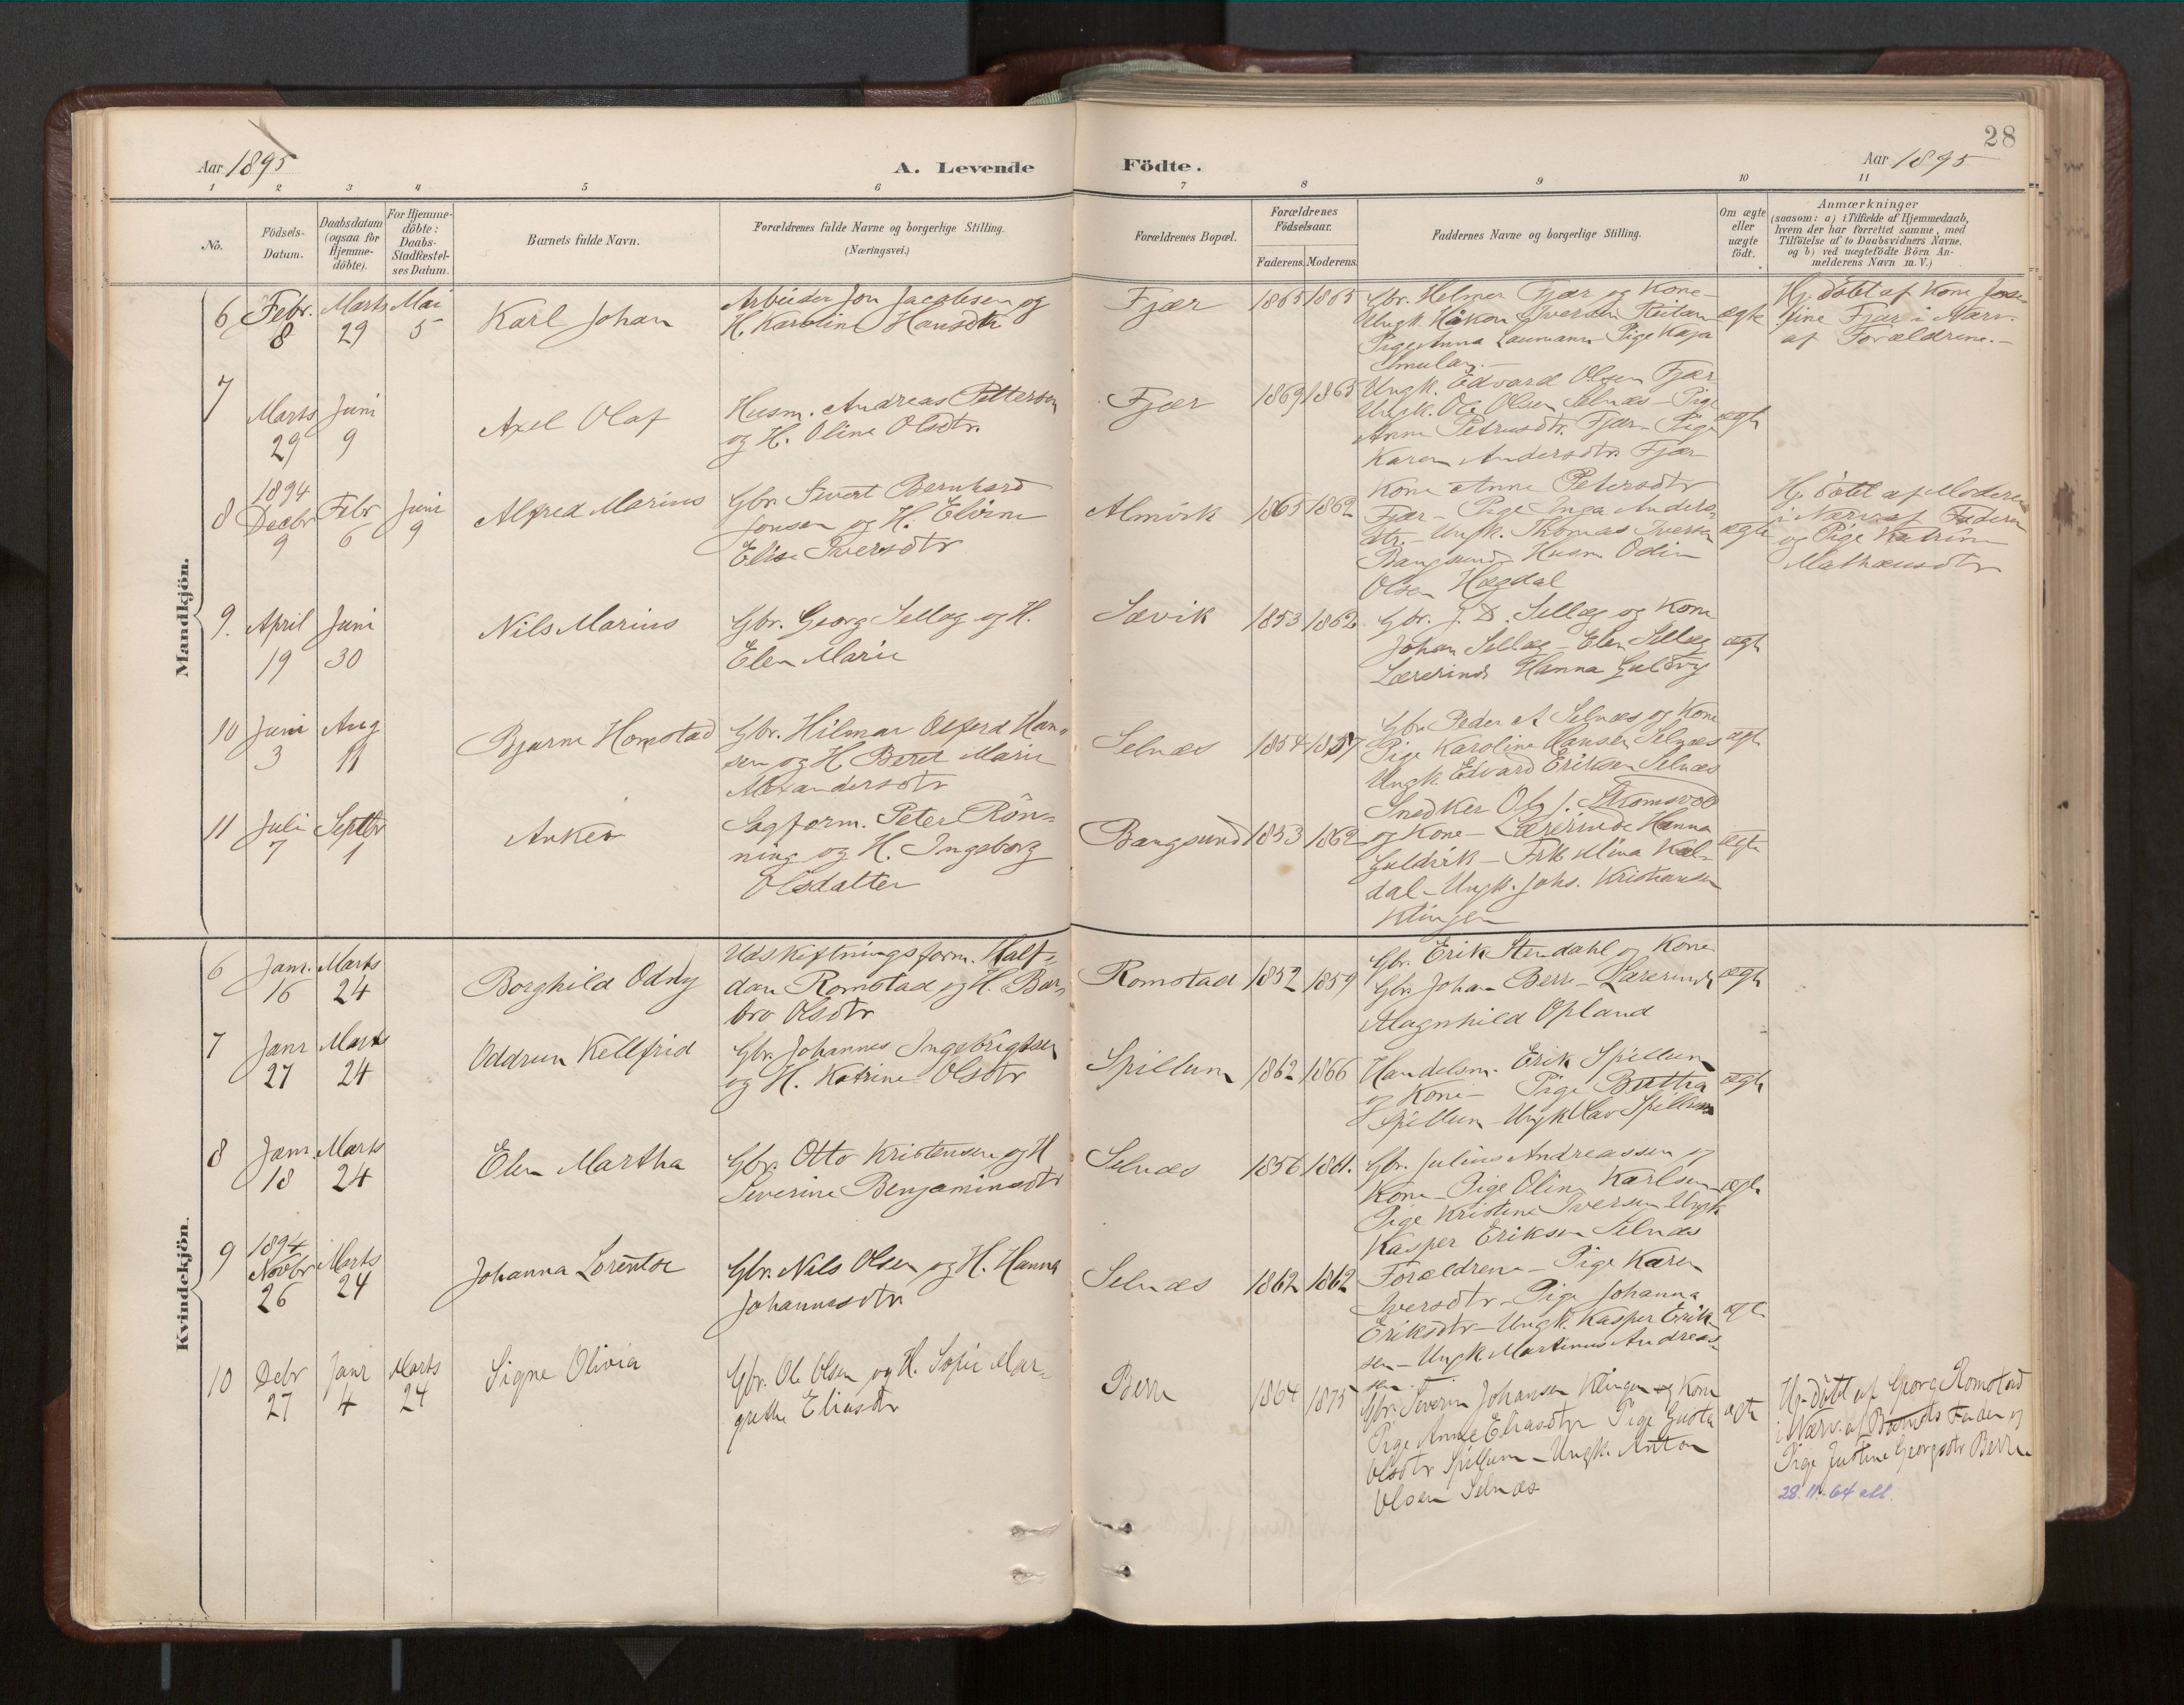 28
Aar 1895
A. Levende Födte.
Aar 1895
1 2 3 4 5 6 7 8 9 10 11
No.
Födsels-Datum.
Daabsdatum (ogsaa for Hjemme-döbte).
For Hjemme-döbte: Daabs-Stadfæstel-ses Datum.
Barnets fulde Navn.
Forældrenes fulde Navne og borgerlige Stilling. (Næringsvei.)
Forældrenes Bopæl.
Forældrenes Födselsaar.
Faderens. Moderens.
Faddernes Navne og borgerlige Stilling.
Om ægte eller uægte födt.
Anmærkninger
(saasom: a) i Tilfælde af Hjemmedaab,
hvem der har forrettet samme, med
Tilföielse af to Daabsvidners Navne,
og b) ved uægtefödte Börn An-
melderens Navn m. V.)
Mandkjön.
6 Febr. 8 Marts 29 Mai 5
Karl Johan
Arbeider Jon Jacobsen og
H. Karoline Hansdtr
Fjær
1865 1865
Gbr. Helmer Fjær og Kone –
Ungk. Håkon Iversen
Pige Anna Laumann Pige Kaja
ægte
Hj. döbt af Kone Jose-
fine Fjær i Nærv.
af Forældrene. –
7 Marts 29 Juni 9
Axel Olaf
Husm. Andreas Pettersen
og H. Oline Olsdtr.
Fjær
1869 1865
Ungk. Edvard Olsen Fjær
Ungk. Ole Olsen Selnæs – Pige
Anne Petrusdtr. Fjær – Pige
Karen Andersdtr. Fjær
ægte
8 1894 Decbr 9 Febr 6 Juni 9
Alfred Marius
Gbr. Sivert Bernhard
Jonsen og H.
Elise Iversdtr
Almvik
1865 1862
Kone Anne Petersdtr
Fjær – Pige Inga Anders-
dtr. – Ungk. Thomas Iversen
Bangsund – Husm Odin
Olsen Hægdal
ægte
Hj. döbt af Moderen
i Nærv. af Faderen
og Pige Katrine
Mathæusdtr
9. April 19 Juni 30
Nils Marius
Gbr. Georg Sellæg og H.
Elen Marie
Sævik
1853 1862
Gbr. J. D. Sellæg og Kone
Johan Sellæg – Elen Sellæg
Lærerinde Hanna Guldvig
ægte
10 Juni 3 Aug 11
Bjarne Homstad
Gbr. Hilmar Olferd Han-
sen og H. Beret Marie
Alexandersdtr
Selnæs
1854 1857
Gbr. Peder A Selnæs og Kone
Pige Karoline Hansen Selnæs
Ungk Edvard Eriksen Selnæs
ægte
11 Juli 7 Septbr 1
Anker
Sagform. Peter Rön-
ning og H. Ingeborg
Olsdatter
Bangsund
1853 1862
Snedker Ole J. Strömsvold
og Kone – Lærerinde Hanna
Guldvik – Frk Mina Kal-
dal – Ungk. Johs. Kristiansen
Klingen
ægte
Kvindekjön.
6 Jan. 16 Marts 24
Borghild Odny
Udskiftningsform. Half-
dan Romstad og H. Bar-
bro Olsdtr
Romstad
1852 1859
Gbr. Erik Stendahl og Kone
Gbr. Johan Berre – Lærerinde
Magnhild Opland
ægte
7 Janr 27 Marts 24
Oddrun Kellfrid
Gbr. Johannes Ingebrigtsen
og H. Katrine Olsdtr
Spillum
1862 1866
Handelsm. Erik Spillum
og Kone – Pige Bertha
Spillum – Ungk Olav Spillum
ægte
8 Jan. 18 Marts 24
Elen Martha
Gbr. Otto Kristensen og H
Severine Benjaminsdtr
Selnæs
1856 1861.
Gbr. Julius Andreassen og
Kone – Pige Oline Karlsen
Pige Kristine Iversen Ungk
Kasper Eriksen Selnæs
ægte
9 1894 Novbr 26 Marts 24
Johanna Lorentse
Gbr. Nils Olsen og H. Hanna
Johannesdtr
Selnæs
1862 1862
Forældrene – Pige Karen
Iversdtr – Pige Johanna
Eriksdtr – Ungk. Kasper Erik-
sen – Ungk Martinus Andreas-
sen. –
ægte
10 Debr 27 Janr 4 Marts 24
Signe Olivia
Gbr. Ole Olsen og H. Sofie Mar-
grethe Eliasdtr
Berre
1864 1875
Gbr. Severin Johansen Klingen og Kone
Pige Anne Eliasdtr Pige Gusta
Olsdtr Spillum – Ungk. Anton
Olsen Selnæs
ægte
Hj. döbt af Georg Romstad
i Nærv. af Barnets Fader og
Pige Justine Georgsdtr Berre
28.11.64